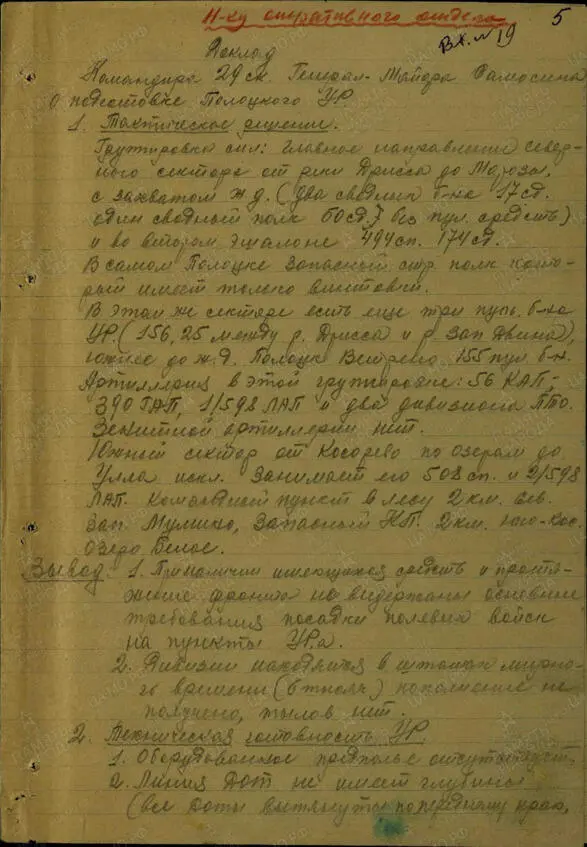 Н-ку оперативного отдела
Вх. №19
5
Доклад
Командира 29 ск. Генерал-Майора Самосина
о подготовке Полоцкого УР
1. Тактическое решение.
Группировка сил: главное направление север-
ного сектора от реки Дрисса до Морозы,
с захватом ж.д. (два сводных б-на 17 сд.
один сводный полк 50сд.) без пул. средств)
и во втором эшалоне 494 сп. 174 сд.
В самом Полоцке Запасный стр. полк кото-
рый имеет только винтовки.
В этом же секторе есть еще три пуль. б-на
УР. (156, 25 между р. Дрисса и р. Зап Двина),
южнее до ж.д. Полоцк Ветрено 155 пул б-н.
Артиллерия в этой группировке: 56 КАП,
390 ГАП, 1/598 ЛАП и два дивизиона ПТО.
Зенитной артиллерии нет.
Южный сектор от Косорево по озерам до
Улла искл. Занимает его 508 сп. и 2/598
ЛАП. Командный пункт в лесу 2 км. сев.
зап. Мулино, Запасный КП. 2 км. юго-вос.
озеро Белое.
Вывод. 1. При наличии имеющихся средств и протя-
жение фронта не выдержаны основные
требования посадки полевых войск
на пункты УРа.
2. Дивизии находятся в штатах мирно-
го времени (6 тысяч) пополнение не
получено, тылов нет.
2. Техническая готовность УР
1. Оборудованное предполье отсутствует.
2. Линия Дот не имеет глубины
(все доты вытянуты по переднему краю,